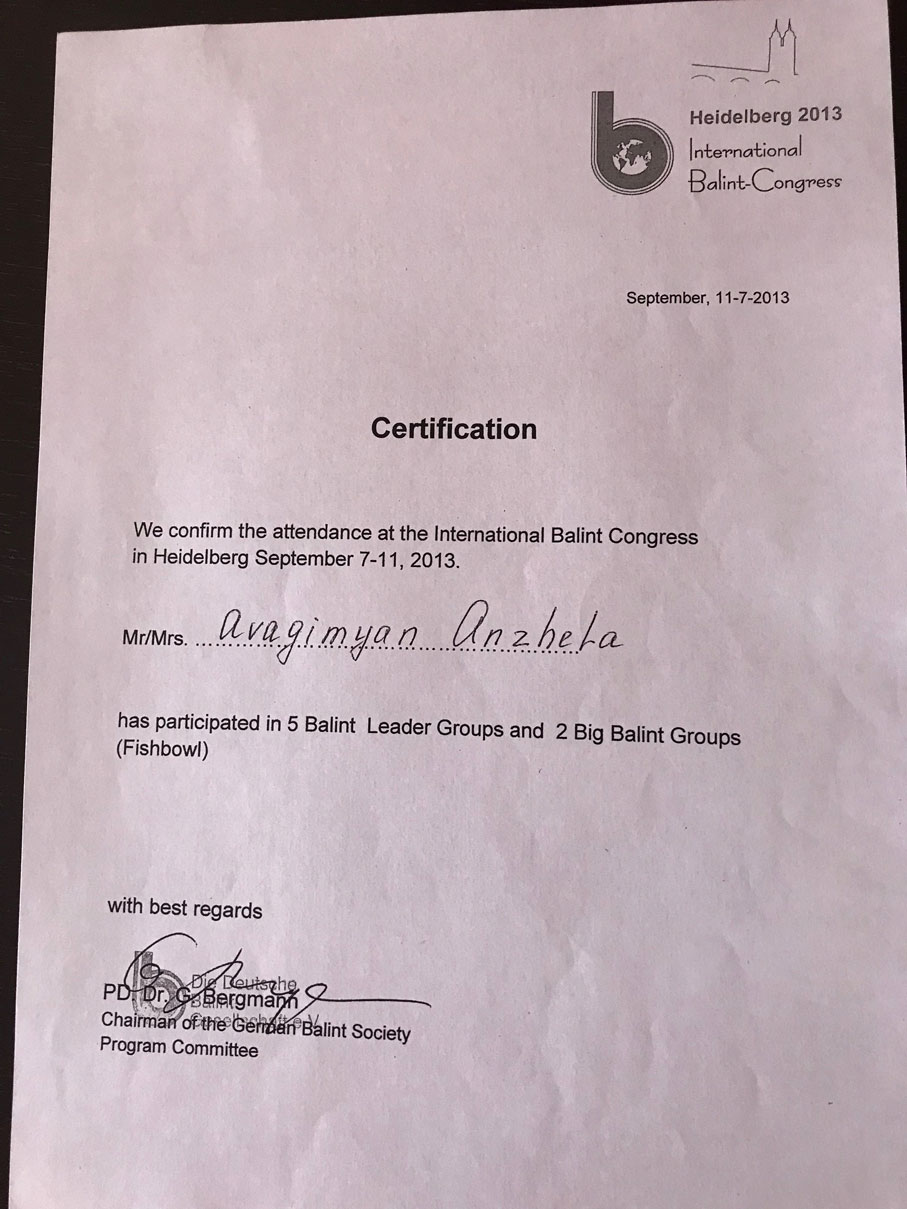 Heidelberg 2013
International
Balint-Congress
September, 11-7-2013
Certification
We confirm the attendance at the International Balint Congress
in Heidelberg September 7-11, 2013.
Mr/Mrs. Avagimyan Anzhela
has participated in 5 Balint Leader Groups and 2 Big Balint Groups
(Fishbowl)
with best regards
Die Deutsche
PD. Dr. G. Bergmann
Chairman of the German Balint Society
Program Committee